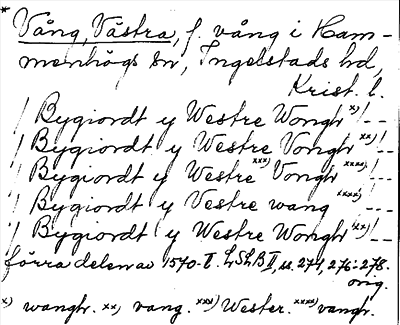 * Vång, Västra, f. vång i Ham-
menhögs sn, Ingelstads hd,
Krist. l.
/ Bygiordt y Westre Wongh x)/--
/ Bygiordt y Westre Vongh xx)/--
/ Bygiordt y Westre xxx) Vongh xxxx)/--
/ Bygiordt y Vestre wang xxxx)--
/ Bygiordt y Westre Wongh xx)/--
förra delen av 1570-t. LSLB II, s. 271, 276-278.
orig.
x) wangh. xx) vang. xxx) Wester. xxxx) vangh.